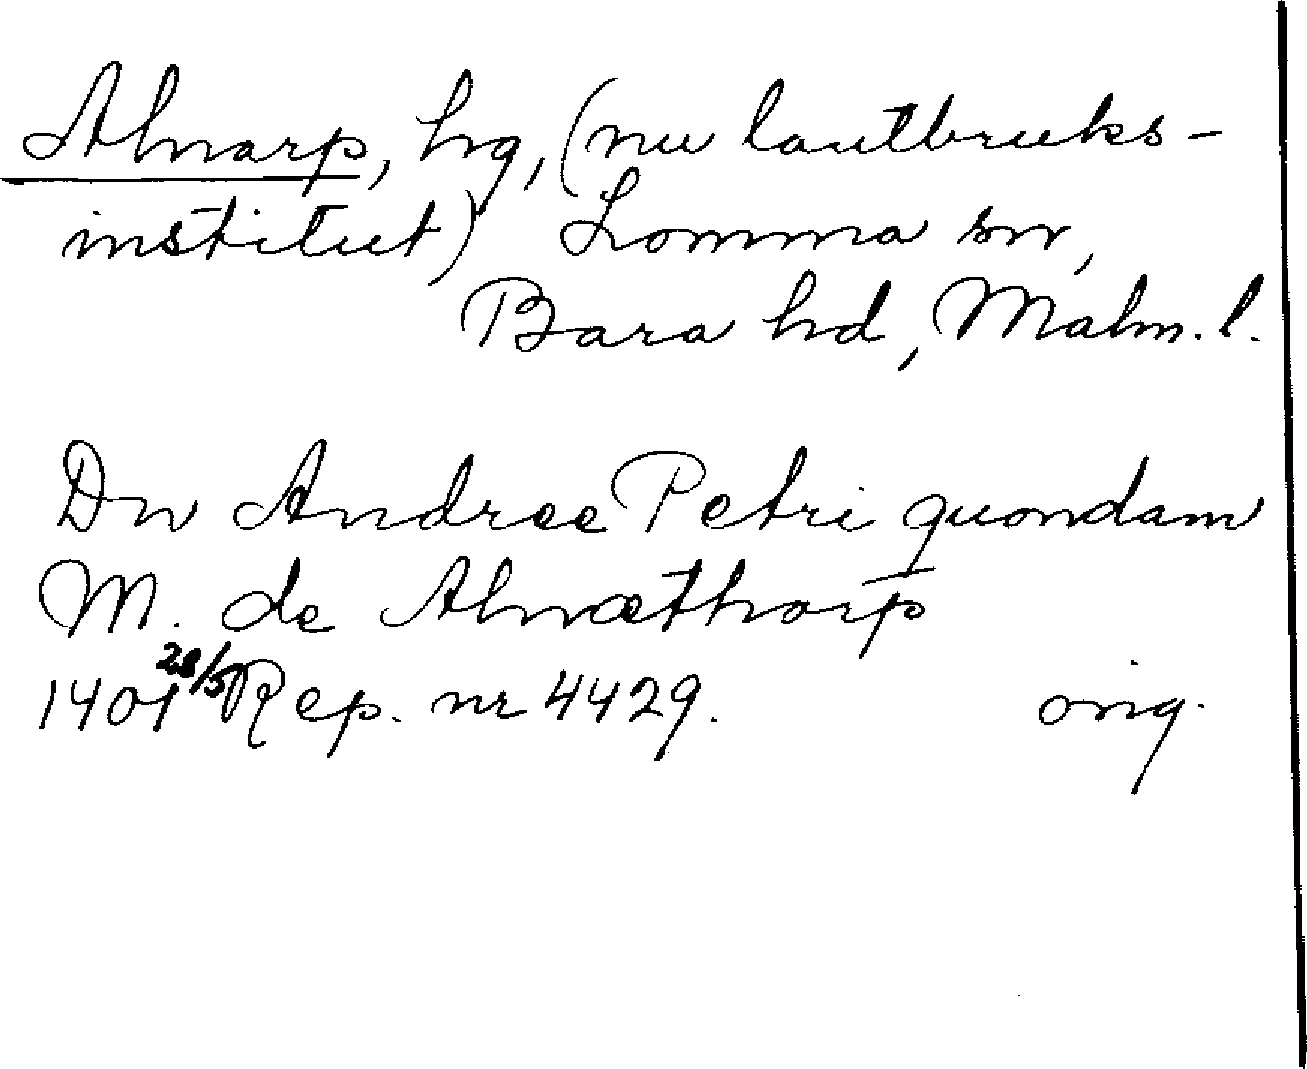 Alnarp, hg, (nu lantbruks-
institut) Lomma sn,
Bara hd, Malm. l.
Dn Andree Petri quondam
M. de Alnæthorp
1401 28/5 Rep. nr 4429. orig.